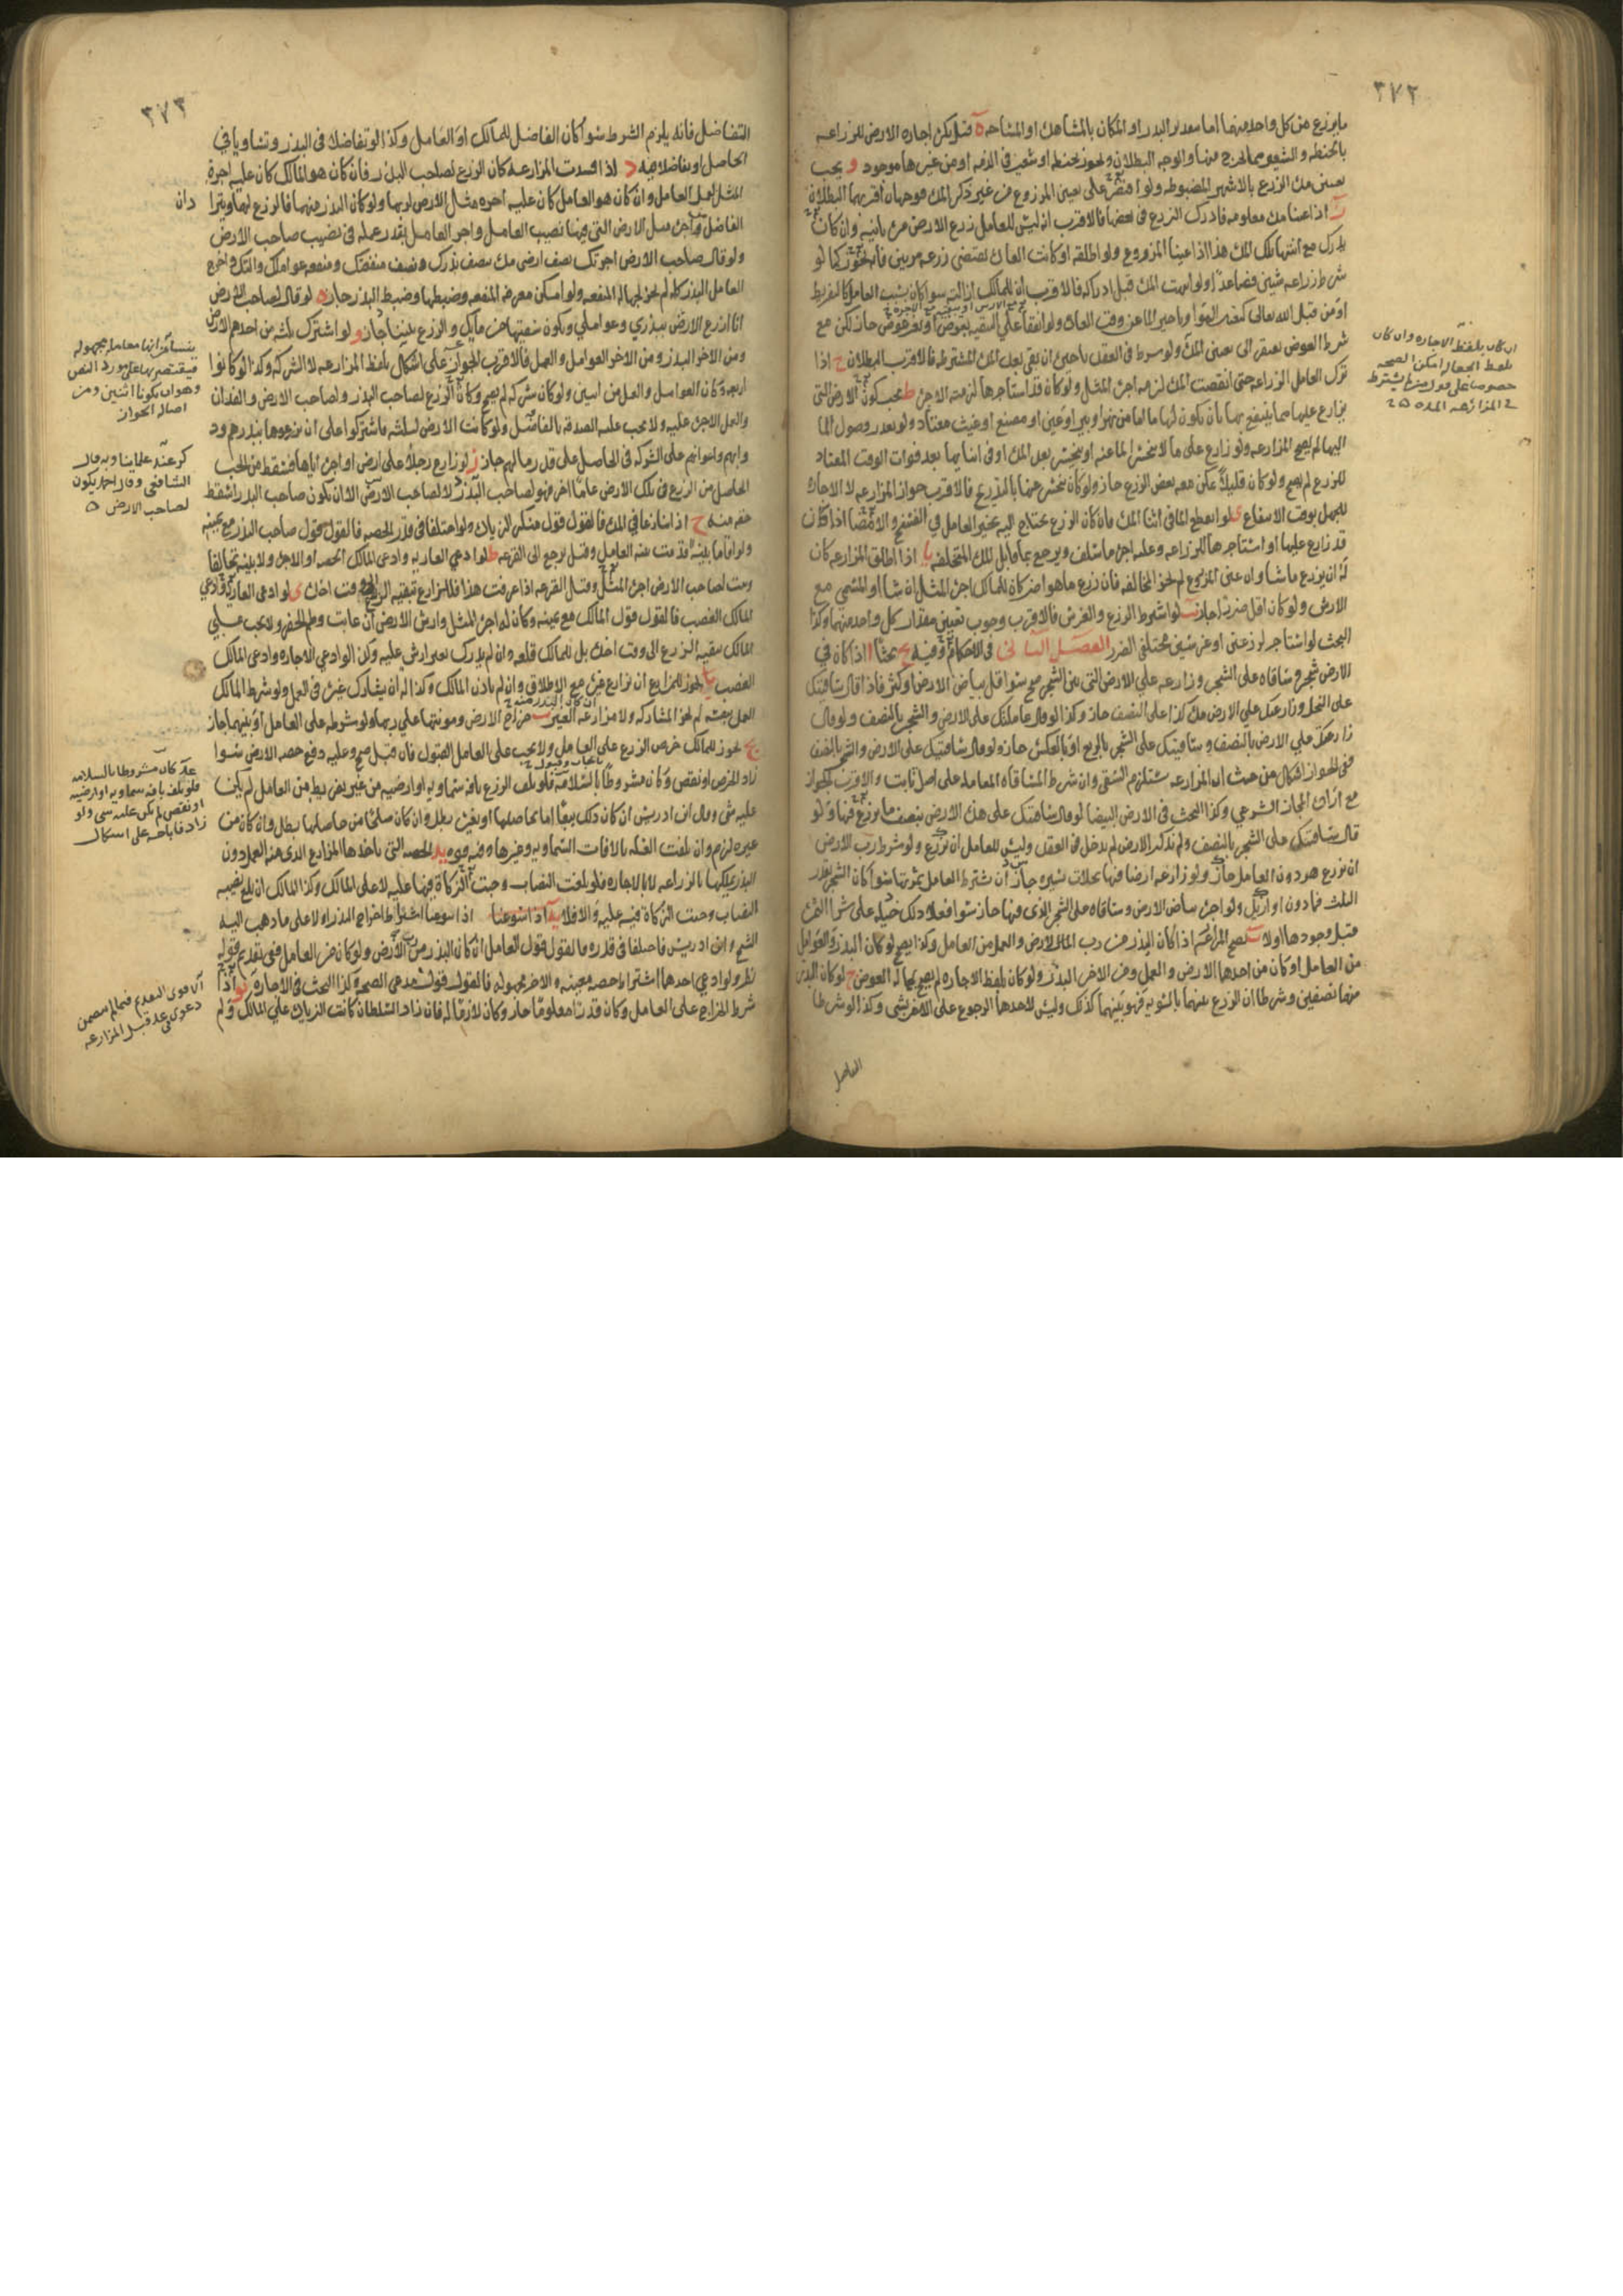 ٣٧٢
ما يزرع من كل واحد منهما اما بتقدير البذر او المكان بالمشاهدة او المساحه ه قيل يكره اجاره الارض للزراعه
بالحنطه والشعير مما يخرج منها والوجه البطلان ويجوز بحنطه او شعير في الذمه او من غيرها موجود و يجب
تعيين مدة الزرع بالاشهر المضبوطه ولو اقتصر على تعيين المزروع من غير ذكر المدة فوجهان اقربهما البطلان
ز اذا عينا مدة معلومه فادرك الزرع في بعضها فالاقرب انه ليس للعامل زرع الارض مرة ثانيه وان كان
يدرك مع انتها تلك المدة هذا اذا عينا المزروع ولو اطلقه او كانت العادة تقتضي زرعه مرتين فانه يجوز كما لو
شرط زراعه شيئين فصاعدا ولو انتهت المدة قبل ادراكه فالاقرب ان للمالك ازالته سوا كان بسبب العامل كالتفريط
او من قبل الله تعالى كتغير الهوا وتاخير الما عن وقت العادة ولو اتفقا على التبقيه بعوض او بغير عوض جاز لكن مع
شرط العوض يفتقر الى تعيين المدة ولو شرط في العقد تاخيره ان بقي بعد المدة المشترطه فالاقرب البطلان ح اذا
ترك العامل الزراعه حتى انقضت المدة لزمه اجره المثل ولو كان قد استاجرها لزمته الاجرة ط يجب كون الارض التي
يزارع عليها مما ينتفع بها بان يكون لها ما اما من نهر او بير او عين او مصنع او غيث معتاد ولو تعذر وصول الما
اليها لم يصح المزارعه ولو زارع على ما لا ينحسر الما عنه او ينحسر بعد المدة او في اثنايها بعد فوات الوقت المعتاد
للزرع لم يصح ولو كان قليلا يمكن معه بعض الزرع جاز ولو كان ينحسر عنها بالتدريج فالاقرب جواز المزارعه لا الاجارة
للجهل بوقت الانتفاع ى لو انقطع الما في اثنا المدة فان كان الزرع يحتاج اليه تخير العامل في الفسخ والامضا اذا كان
قد زارع عليها او استاجرها للزراعه وعليه اجرة ما سلف ويرجع بما قابل المدة المتخلفه يا اذا اطلق المزارعه كان
له ان يزرع ما شا وان عين المزروع لم يجز المخالفه فان زرع ما هو اضر كان للمالك اجرة المثل ان شا او المسمى مع
الارش ولو كان اقل ضررا جاز يب لو اشترط الزرع والغرس فالاقرب وجوب تعيين مقدار كل واحد منهما وكذا
البحث لو استاجر لزرعين او غرسين مختلفي الضرر الفصل الثاني في الاحكام وفيه يح بحثا ا اذا كان في
الارض شجر وساقاه على الشجر وزارعه على الارض التي بين الشجر صح سوا قل بياض الارض او كثر فاذا قال ساقيتك
على النخل وزارعتك على الارض مدة كذا على النصف جاز وكذا لو قال عاملتك على الارض والشجر بالنصف ولو قال
زارعتك على الارض بالنصف وساقيتك على الشجر بالربع او بالعكس جاز ولو قال ساقيتك على الارض والشجر بالنصف
ففي الجواز اشكال من حيث ان المزارعه تستلزم السقى وان شرط المساقاه المعامله على اصل ثابت والاقرب الجواز
مع ارادة المجاز الشرعي وكذا البحث في الارض البيضا لو قال ساقيتك على هذه الارض بنصف ما يزرع فيها ولو
قال ساقيتك على الشجر بالنصف ولم يذكر الارض لم يدخل في العقد وليس للعامل ان يزرع ولو شرط رب الارض
ان يزرع هو دون العامل جاز ولو زارعه ارضا فيها نخلات يسيره جاز ان يشترط العامل ثمرتها سوا كان الشجر بقدر
الثلث فما دون او ازيد ولو اجره بياض الارض وساقاه على الشجر الذي فيها جاز سوا فعلا ذلك حيلة على شرا الثمرة
قبل وجودها او لا ب تصح المزارعه اذا كان البذر من رب المال والارض والعمل من العامل وكذا يصح لو كان البذر والعوامل
من العامل او كان من احدهما الارض والعمل ومن الاخر البذر ولو كان بلفظ الاجاره لم يصح لجهالة العوض ج لو كان البذر
منهما نصفين وشرطا ان الزرع بينهما بالسويه فهو بينهما كذلك وليس لاحدهما الرجوع على الاخر بشي وكذا لو شرطا
التفاضل
ان كان بلفظ الاجاره وان كان
بلفظ الجعاله امكن الصحه
خصوصا على قول من لم يشترط
في المزارعه المده
٣٧٣
التفاضل فانه يلزم الشرط سوا كان الفاضل للمالك او العامل وكذا لو تفاضلا في البذر وتساويا في
الحاصل او تفاضلا فيه د اذا فسدت المزارعه كان الزرع لصاحب البذر فان كان هو المالك كان عليه اجرة
المثل لعمل العامل وان كان هو العامل كان عليه اجره مثل الارض لربها ولو كان البذر منهما فالزرع لهما ويترادان
الفاضل من اجرة مثل الارض التي فيها نصيب العامل واجر العامل بقدر عمله في نصيب صاحب الارض
ولو قال صاحب الارض اجرتك نصف ارضي هذه بنصف بذرك ونصف منفعتك ومنفعه عواملك والتك واخرج
العامل البذر كله لم يجز لجهاله المنفعه ولو امكن معرفه المنفعه وضبطها وضبط البذر جاز ه لو قال لصاحب الارض
انا ازرع الارض ببذري وعواملي ويكون سقيها من مايك والزرع بيننا جاز و لو اشترك ثلثه من احدهم الارض
ومن الاخر البذر ومن الاخر العوامل والعمل فالاقرب الجواز على اشكال بلفظ المزارعه لا الشركه وكذا لو كانوا
اربعة
والعمل الاجرة عليه ولا يجب عليه الصدقه بالفاضل ولو كانت الارض لثلثه فاشتركوا على ان يزرعوها ببذرهم ودوابهم
واعوانهم على الشركه في الحاصل على قدر ما لهم جاز ز لو زارع رجلا على ارض او اجره اياها فسقط من الحب
الحاصل من الزرع في تلك الارض عاما اخر فهو لصاحب البذر لا لصاحب الارض الا ان يكون صاحب البذر اسقط
حقه منه ح اذا تنازعا في المدة فالقول قول منكر الزيادة ولو اختلفا في قدر الحصه فالقول قول صاحب البذر مع يمينه
ولو اقاما بينة قدمت بينه العامل وقيل يرجع الى القرعه ط لو ادعى العاريه وادعى المالك الحصه او الاجرة ولا بينه تحالفا
وثبت لصاحب الارض اجرة المثل وقيل القرعه اذا عرفت هذا فللمزارع تبقيه الزرع الى وقت اخذه ى لو ادعى العارية وادعى
المالك الغصب فالقول قول المالك مع يمينه وكان له اجرة المثل وارش الارض ان عابت وطم الحفر ولا يجب على
المالك تبقيه الزرع الى وقت اخذه بل للمالك قلعه وان لم يدرك بغير ارش عليه وكذا لو ادعى الاجاره وادعى المالك
الغصب يا يجوز للمزارع ان يزارع غيره مع الاطلاق وان لم ياذن المالك وكذا له ان يشارك غيره في العمل ولو شرط المالك
ان كان البذر منه
العمل بنفسه لم تجز المشاركه ولا مزارعه الغير يب خراج الارض ومونتها على ربها ولو شرطه على العامل او بينهما جاز
يج يجوز للمالك خرص الزرع على العامل ولا يجب على العامل القبول فان قبل صح وعليه دفع حصه الارض سوا
زاد الخرص او نقص وكان مشروطا بالسلامه فلو تلف الزرع بافه سماويه او ارضيه من غير تفريط من العامل لم يكن
عليه شي وقال ابن ادريس ان كان ذلك بيعا اما بحاصلها او بغيره بطل وان كان صلحا من حاصلها بطل وان كان من
غيره لزم وان تلفت الغله بالافات السماويه وغيرها وفيه قوه يد الحصه التي ياخذها المزارع الذي منه العمل دون
البذر يملكها بالزراعه لا بالاجاره فلو بلغت النصاب وجبت الزكاة فيها عليه لا على المالك وكذا المالك ان بلغ نصيبه
النصاب وجبت الزكاة فيه عليه والا فلا يه اذا سوغنا اشتراط اخراج البذر اولا على ما ذهب اليه
الشيخ وابن ادريس فاختلفا في قدره فالقول قول العامل ان كان البذر من رب الارض ولو كان من العامل ففي تقديم قوله
نظر ولو ادعى احدهما اشتراط حصه معينه والاخر مجهوله فالقول قول مدعي الصحه وكذا البحث في الاجارة يو اذا
شرط الخراج على العامل وكان قدرا معلوما جاز وكان لازما له فان زاد السلطان كانت الزيادة على المالك ولم
ينشا من انها معامله مجهوله
فيقتصر بها على مورد النص
وهو ان يكونا اثنين ومن
اصاله الجواز
ذكره عده علماينا وبه قال
الشافعي وقال احمد يكون
لصاحب الارض
علة كان مشروطا بالسلامه
فلو تلف بافه سماويه او ارضيه
او نقص لم يكن عليه شي ولو
زاد فاباحه على اشكال